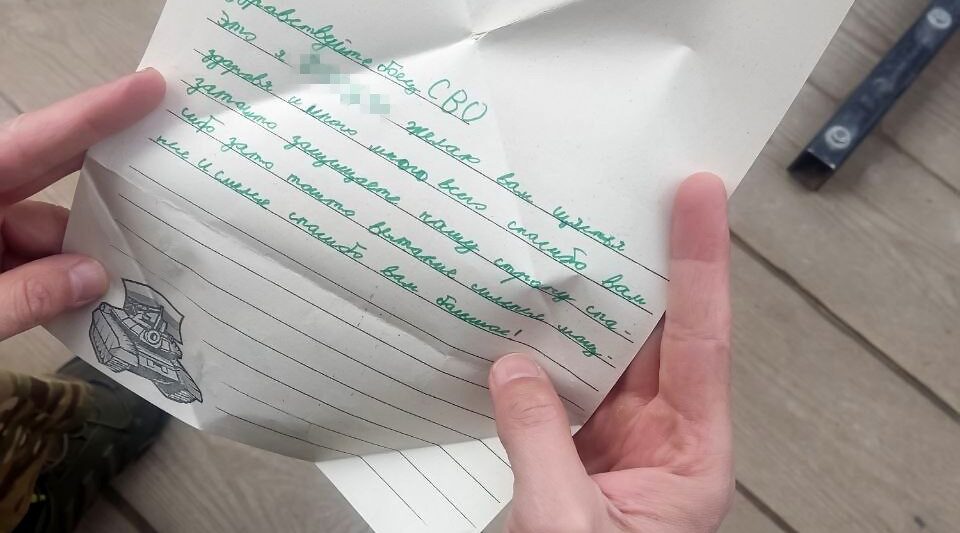 Здравствуйте боец СВО
это я желаю вам щястья
здоровья и много много всего спасибо вам
затошто защищаете нашу страну спа-
сибо зато тошто вытакие сильные мощ-
ные и смелые спасибо вам большое!